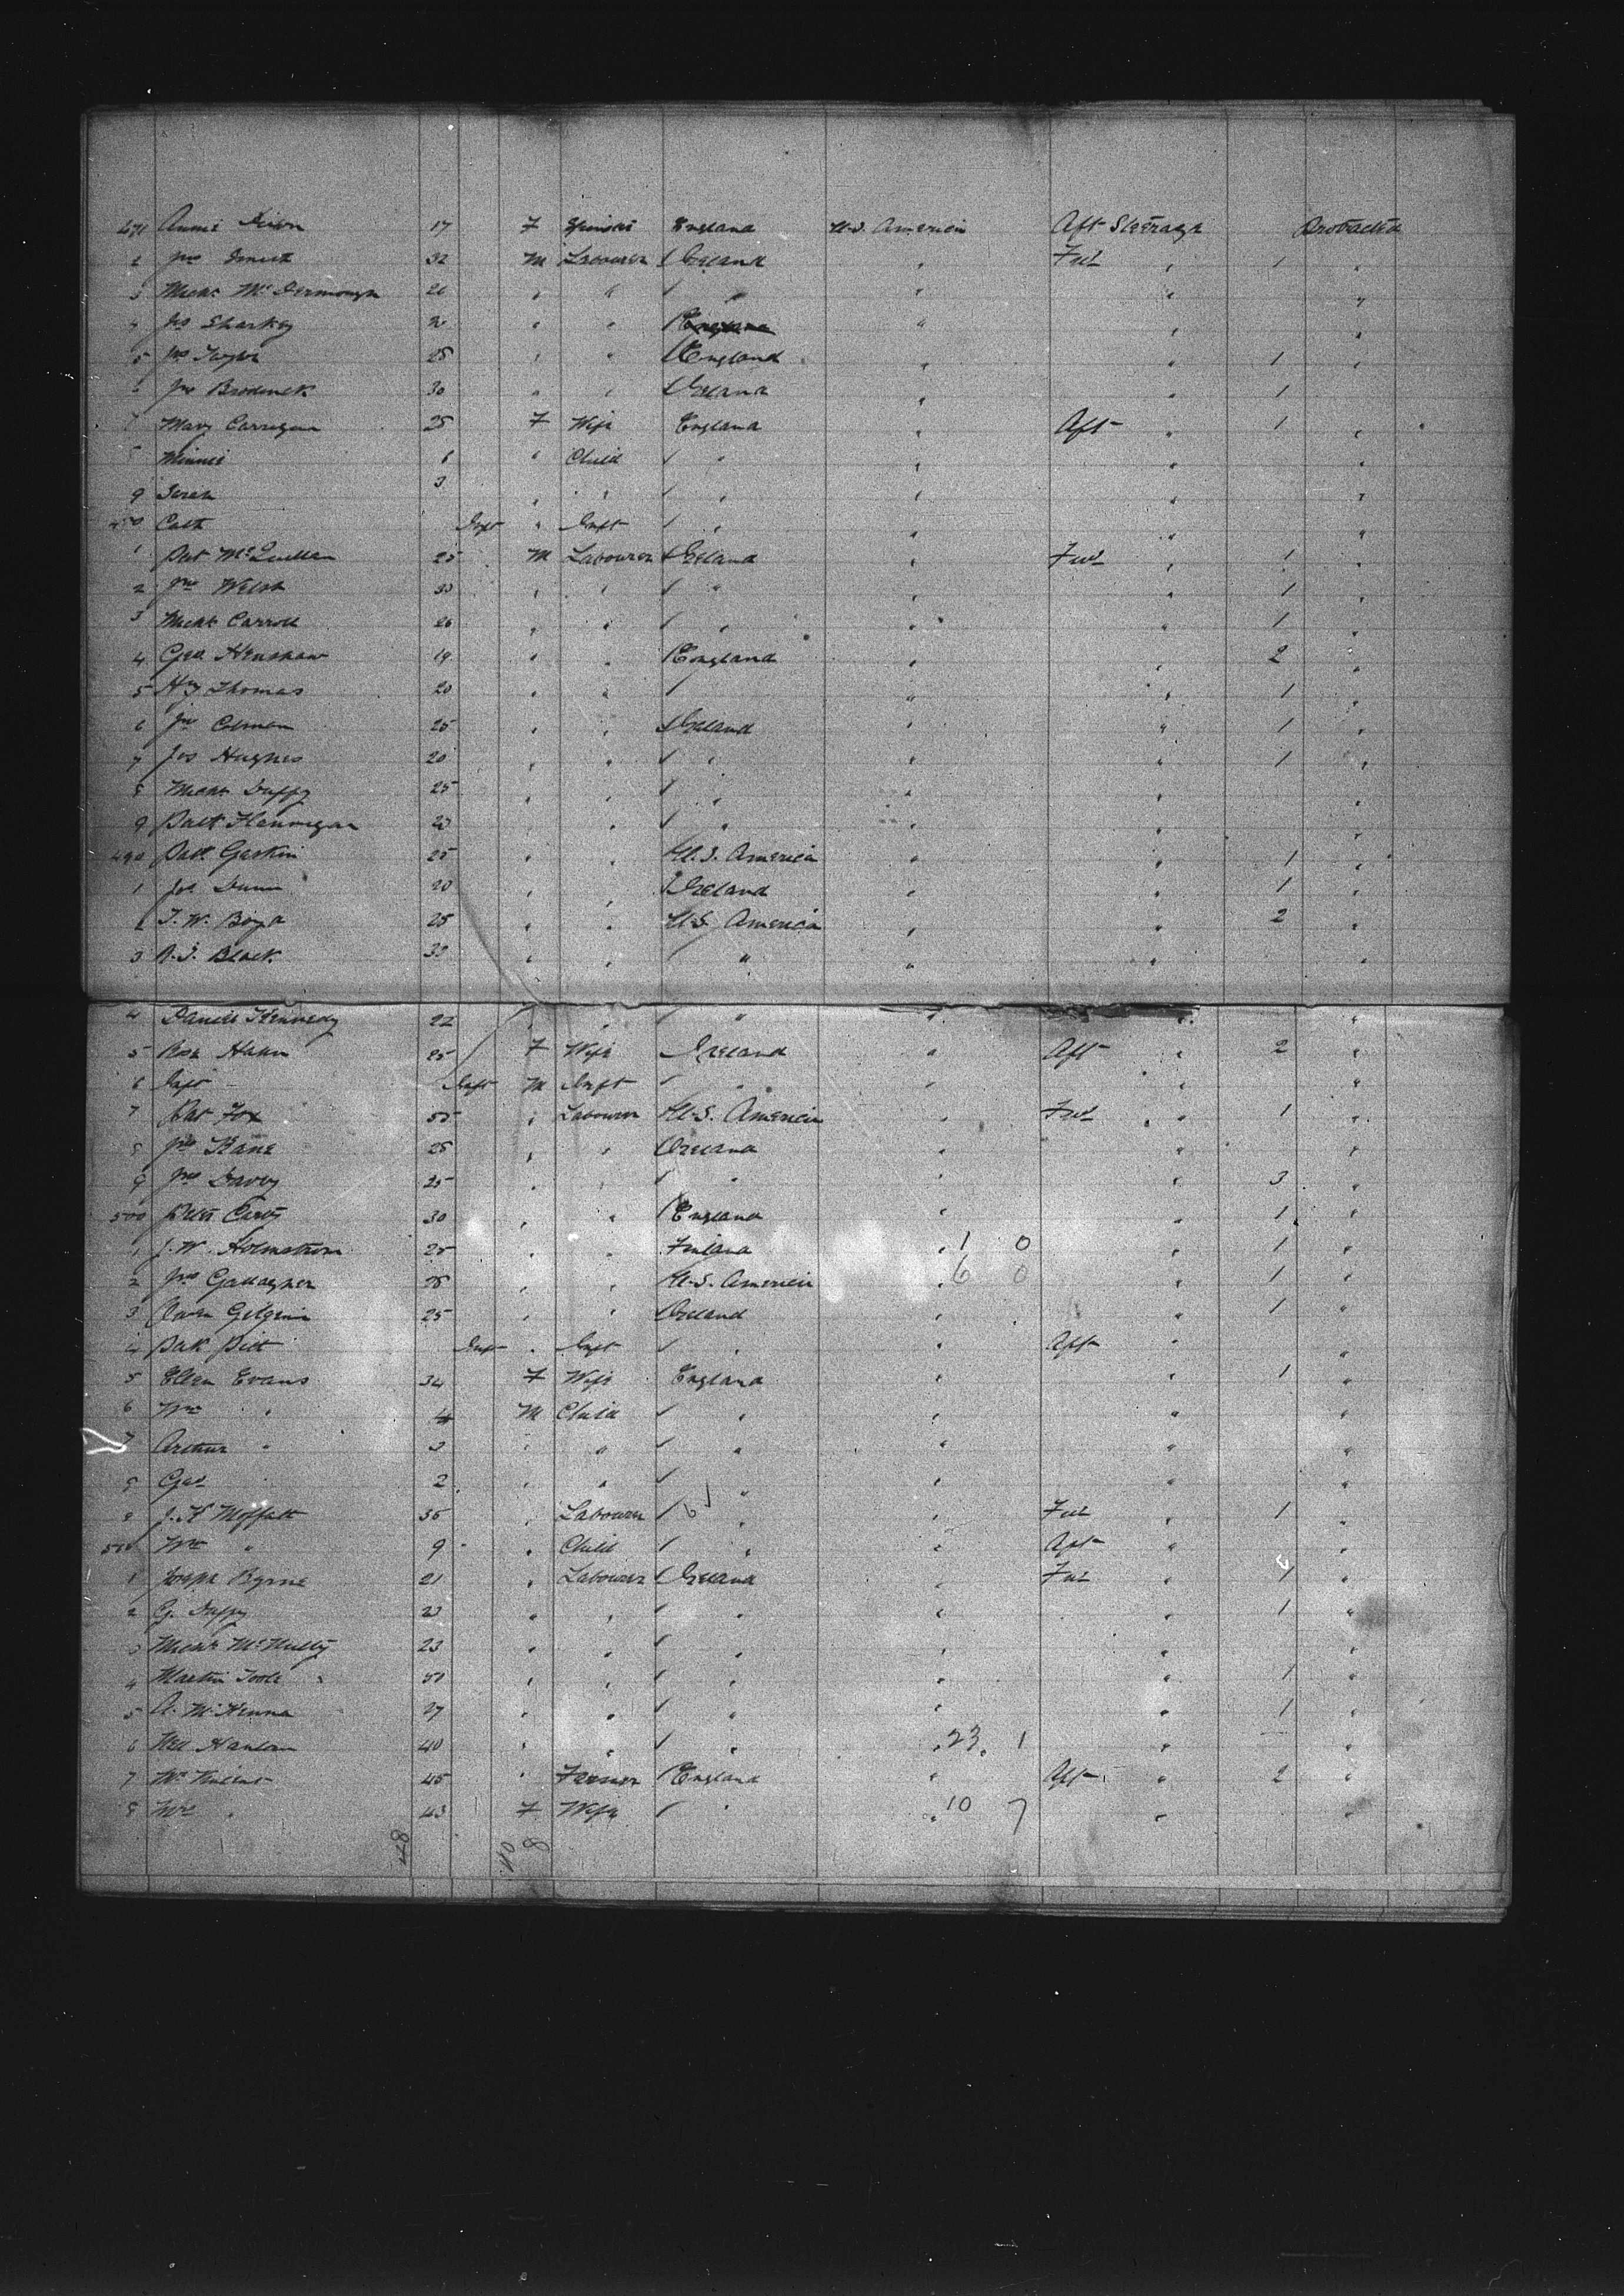 471 Annie Dixon 17 F Spinster England U.S. America Aft Steerage Protracted
2 Jno Smith 32 M Labourer Ireland " Fwd " 1 "
3 Michl McDermough 26 " " " " " "
4 Jas Sharkey " " " " "
5 Jno Taylor 25 " " England " " 1 "
6 Jno Broderick 30 " " Ireland " " 1
7 Mary Carrigan 25 F Wife England " Aft " 1 "
8 Minnie 6 " Child " " " "
9 Sarah 3 " " " " " "
480 Cath Inft " Inft " " " "
1 Pat McQuillan 25 M Labourer Ireland " Fwd " 1 "
2 Jno Welsh 30 " " " " " 1 "
3 Michl Carroll 26 " " " " " 1 "
4 Geo Henshaw 19 " " England " " 2 "
5 Hy Thomas 20 " " " " 1 "
6 Jno Colman 25 " " Ireland " " 1 "
7 Jos Hughes 20 " " " " " 1 "
8 Michl Duffy 25 " " " " " "
9 Patk Flannigan 20 " " " " " "
490 Patk Gaskin 25 " " U.S. America " " 1 "
1 Jos Dunn 20 " " Ireland " " 1 "
2 T. W. Boyd 25 " " U.S. America " " 2 "
3 Black 33 " " " " " "
4 Daniel Kennedy 22 " " " " " "
5 Rose 25 F Wife Ireland " Aft " 2 "
6 Inft Inft M Inft " " " "
7 Pat Fox 55 " Labourer U.S. America " Fwd " 1 "
8 Jno Kane 25 " " Ireland " " "
9 Jno Davey 25 " " " " " 3 "
500 Peter Carty 30 " " England " " 1 "
1 J. W. Holmstrom 25 " " Finland " 1 0 " 1 "
2 Jno Gallagher 28 " " U.S. America " 6 0 " 1 "
3 Owen 25 " " Ireland " " 1 "
4 Patk Inft " Inft " " Aft " "
5 Ellen Evans 34 F Wife England " " 1 "
6 Wm " 4 M Child " " " "
7 Arthur " 3 " " " " " "
8 Geo " 2 " " " " " "
9 J. H. Moffatt 35 " Labourer 6 " " Fwd " 1 "
510 Wm " 9 " Child " " Aft " "
1 Joseph Byrne 21 " Labourer Ireland " Fwd " 1 "
2 G. Duffy 23 " " " " " 1 "
3 Michl McNulty 23 " " " " " "
4 Martin Toole 50 " " " " " 1 "
5 A. McKenna 27 " " " " " 1 "
6 Hanlon 40 " " " " 23 1 " "
7 Wm Vincent 45 " Farmer England " Aft " 2 "
8 Mrs " 43 F Wife " " 10 7 " "